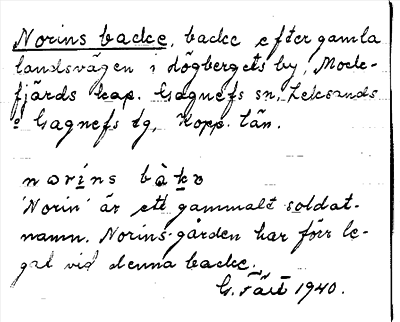 Norins backe, backe efter gamla
landsvägen i Högbergets by, Mock-
fjärds kap. Gagnefs sn, Leksands
o Gagnefs tg, Kopp. län.
norins bako
'Norin' är ett gammalt soldat-
namn. Norins-gården har förr le-
gat vid denna backe.
G. 1940.